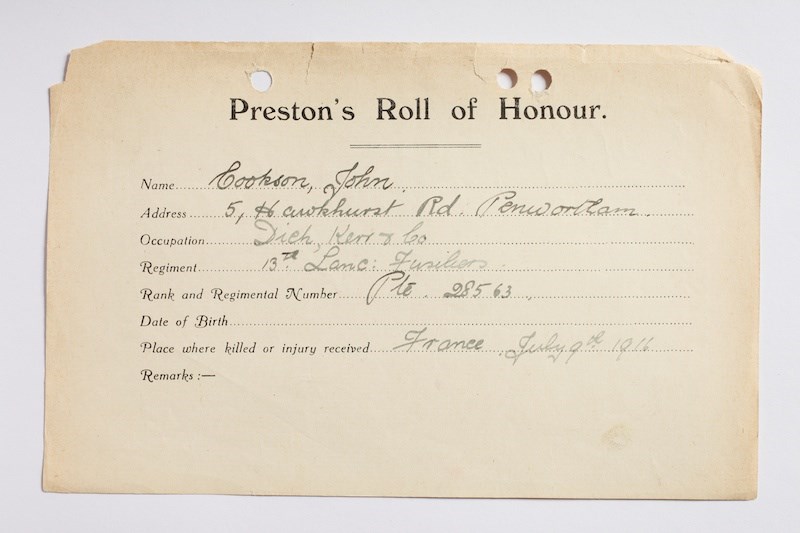 Preston's Roll of Honour.
Name Cookson, John.
Address 5, Hawkhurst Rd. Penwortham.
Occupation Dick, Kerr & Co
Regiment 13th Lanc: Fusiliers
Rank and Regimental Number Pte. 28563
Date of Birth
Place where killed or injury received France July 9th 1916
Remarks :—